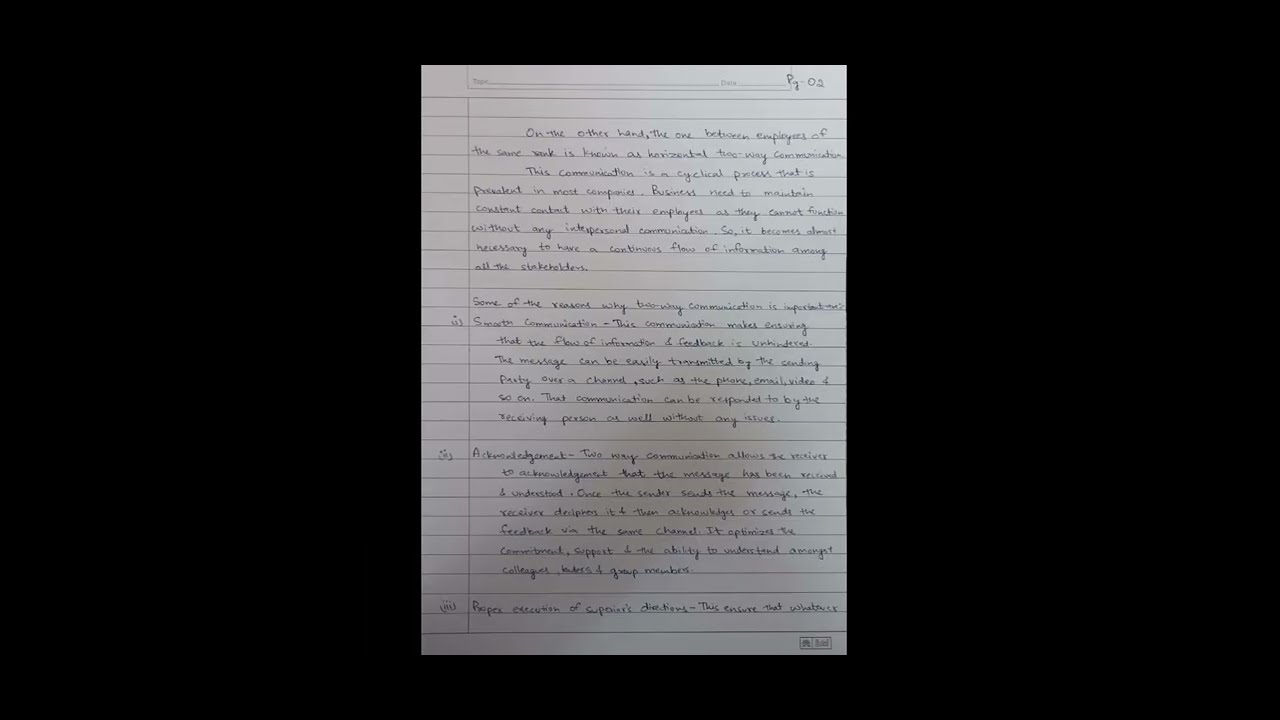 Topic Date Pg-02
On the other hand, the one between employees of
the same rank is known as horizontal two-way communication
This communication is a cyclical process that is
prevalent in most companies. Business need to maintain
constant contact with their employees as they cannot function
without any interpersonal communication. So, it becomes almost
necessary to have a continuous flow of information among
all the stakeholders.
Some of the reasons why two-way communication is important are:-
i) Smooth communication - This communication makes ensuring
that the flow of information & feedback is unhindered.
The message can be easily transmitted by the sending
party over a channel, such as the phone, email, video &
so on. That communication can be responded to by the
receiving person as well without any issues.
(ii) Acknowledgement - Two way communication allows the receiver
to acknowledgement that the message has been received
& understood. Once the sender sends the message, the
receiver deciphers it & then acknowledges or sends the
feedback via the same channel. It optimizes the
commitment, support & the ability to understand amongst
colleagues, leaders & group members.
(iii) Proper execution of superior's directions - This ensure that whatever